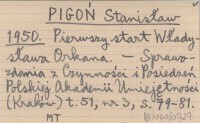 PIGOŃ Stanisław
1950. Pierwszy start Włady-
sława Orkana. — Sprawo-
zdania z Czynności i Posiedzeń
Polskiej Akademii Umiejętności
(Kraków) t. 51, nr 3, s. 79-81.
MT